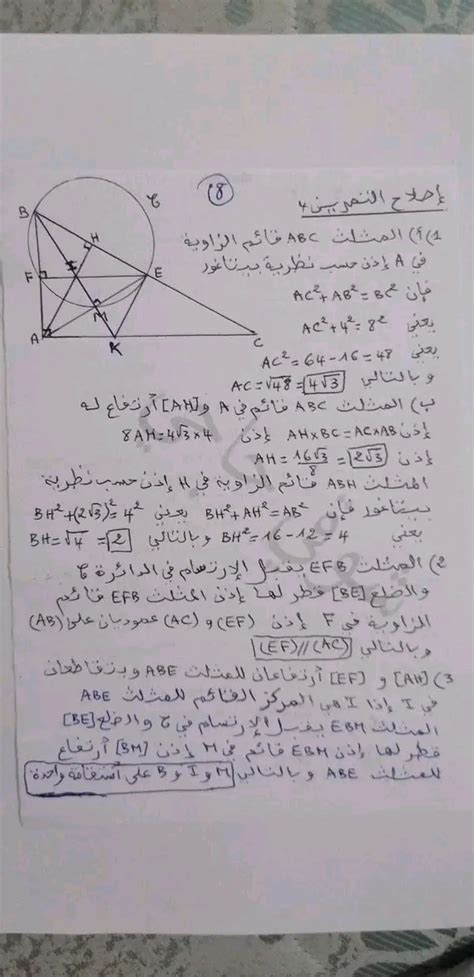 (8
إصلاح التمرين 4
B
H
F
I
E
A
M
K
C
1) أ) المثلث ABC قائم الزاوية
في A إذن حسب نظرية بيتاغور
فإن AC²+AB²=BC²
يعني AC²+4²=8²
يعني AC²=64-16=48
وبالتالي AC=√48=4√3
ب) المثلث ABC قائم في A و[AH] أرتفاع له
إذن AH×BC=AC×AB إذن 8AH=4√3×4
إذن AH=16√3/8=2√3
المثلث ABH قائم الزاوية في H إذن حسب نظرية
بيتاغور فإن BH²+AH²=AB² يعني BH²+(2√3)²=4²
يعني BH²=16-12=4 وبالتالي BH=√4=2
2) المثلث EFB يقبل الإرتسام في الدائرة
والضلع [BE] قطر لها إذن المثلث EFB قائم
الزاوية في F إذن (EF) و (AC) عموديان على (AB)
وبالتالي (EF)//(AC)
3) [AH] و [EF] أرتفاعان للمثلث ABE ويتقاطعان
في I إذا I هي المركز القائم للمثلث ABE
المثلث EBM يقبل الإرتسام في والضلع [BE]
قطر لها إذن EBM قائم في M إذن [BM] أرتفاع
للمثلث ABE وبالتالي M و I و B على أستقامة واحدة